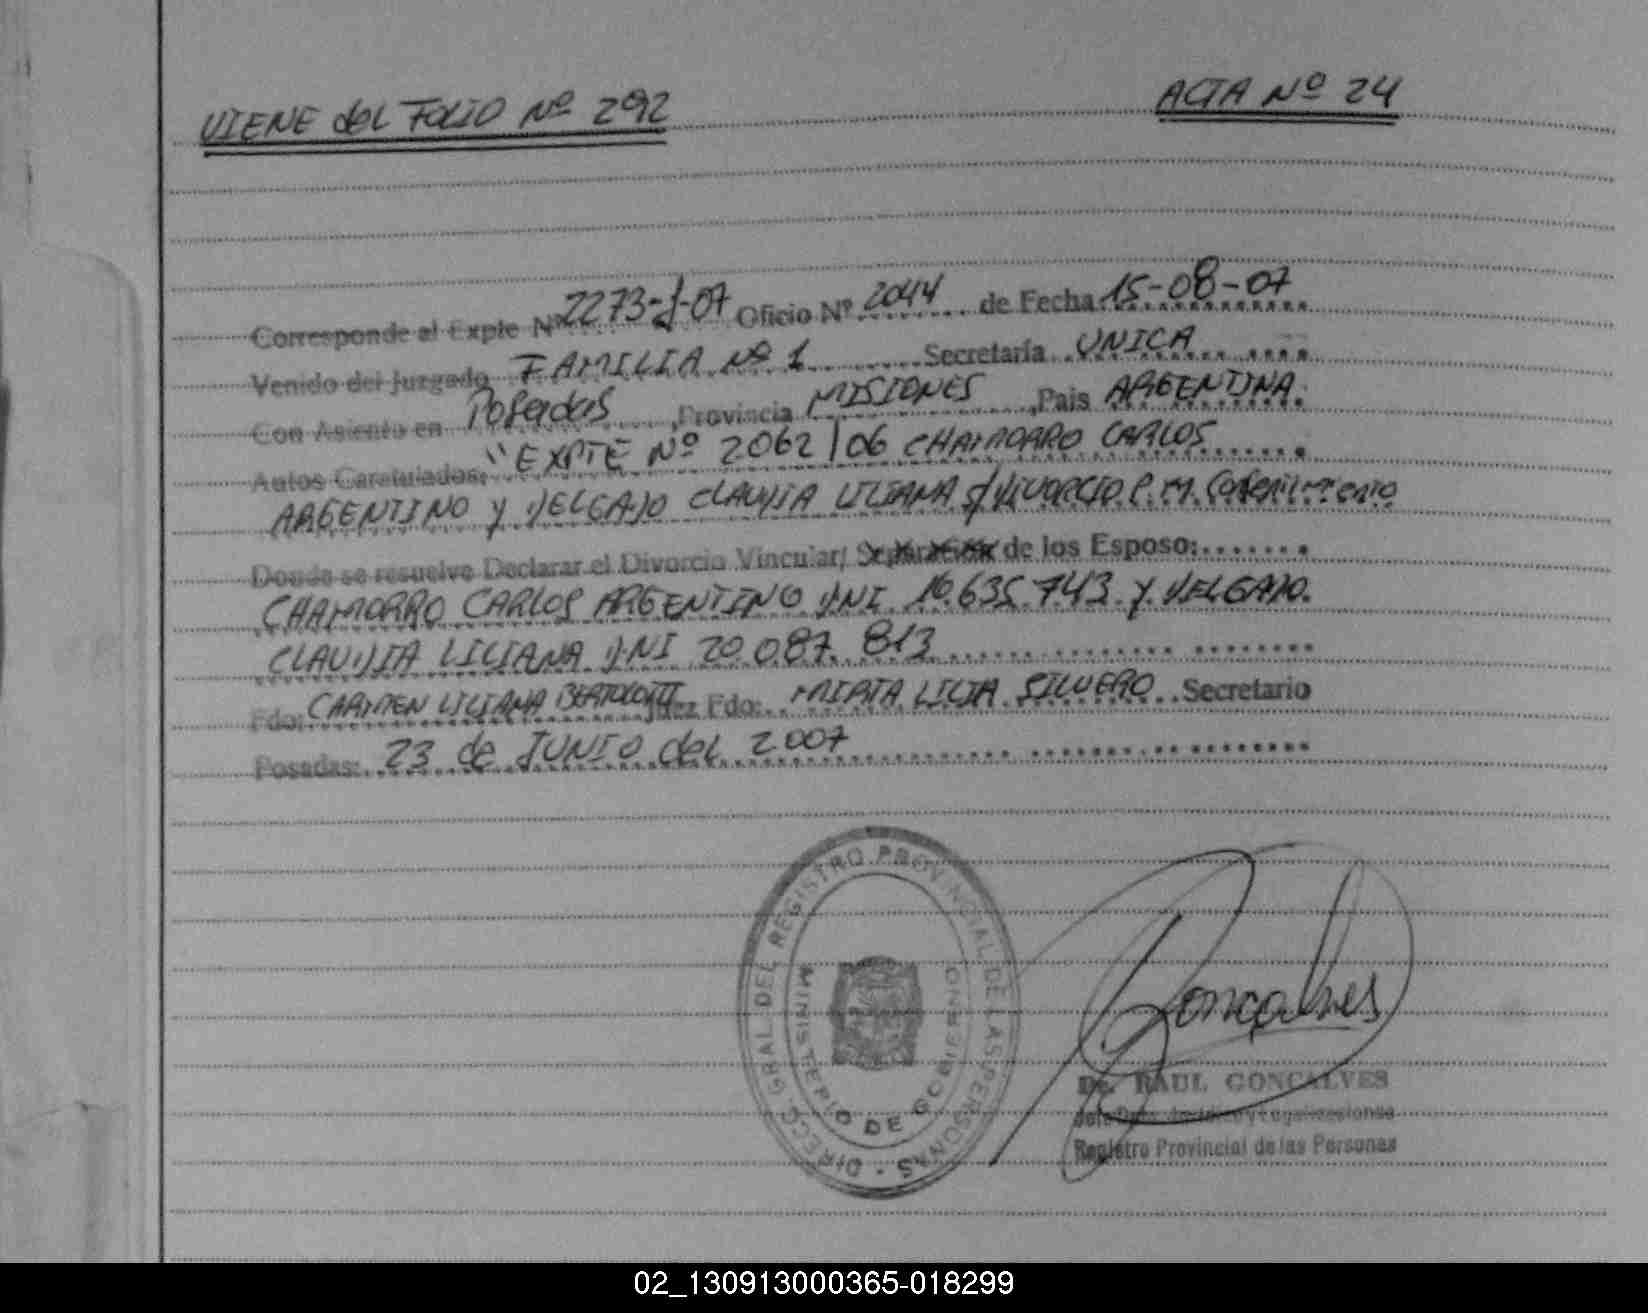 VIENE del FOLIO Nº 292
ACTA Nº 24
Corresponde al Expte Nº 2273-J-07 Oficio Nº 2044 de Fecha 15-08-07
Venido del Juzgado FAMILIA Nº 1 Secretaría UNICA
Con Asiento en Posadas, Provincia MISIONES, Pais ARGENTINA
Autos Caratulados: "EXPTE Nº 2062/06 CHAMORRO CARLOS
ARGENTINO y DELGADO CLAUDIA LILIANA s/DIVORCIO P.M.
Donde se resuelve Declarar el Divorcio Vincular/ Separación de los Esposo:
CHAMORRO CARLOS ARGENTINO DNI 16.635.743 y DELGADO
CLAUDIA LILIANA DNI 20.087.813
Fdo: CARMEN LILIANA Juez Fdo: MIRTA LICIA SILVERO Secretario
Posadas: 23 de JUNIO del 2007
DIRECC. GRAL. DEL REGISTRO PROVINCIAL DE LAS PERSONAS
MINISTERIO DE GOBIERNO
Goncalves
Dr. RAUL GONCALVES
Registro Provincial de las Personas
02_130913000365-018299